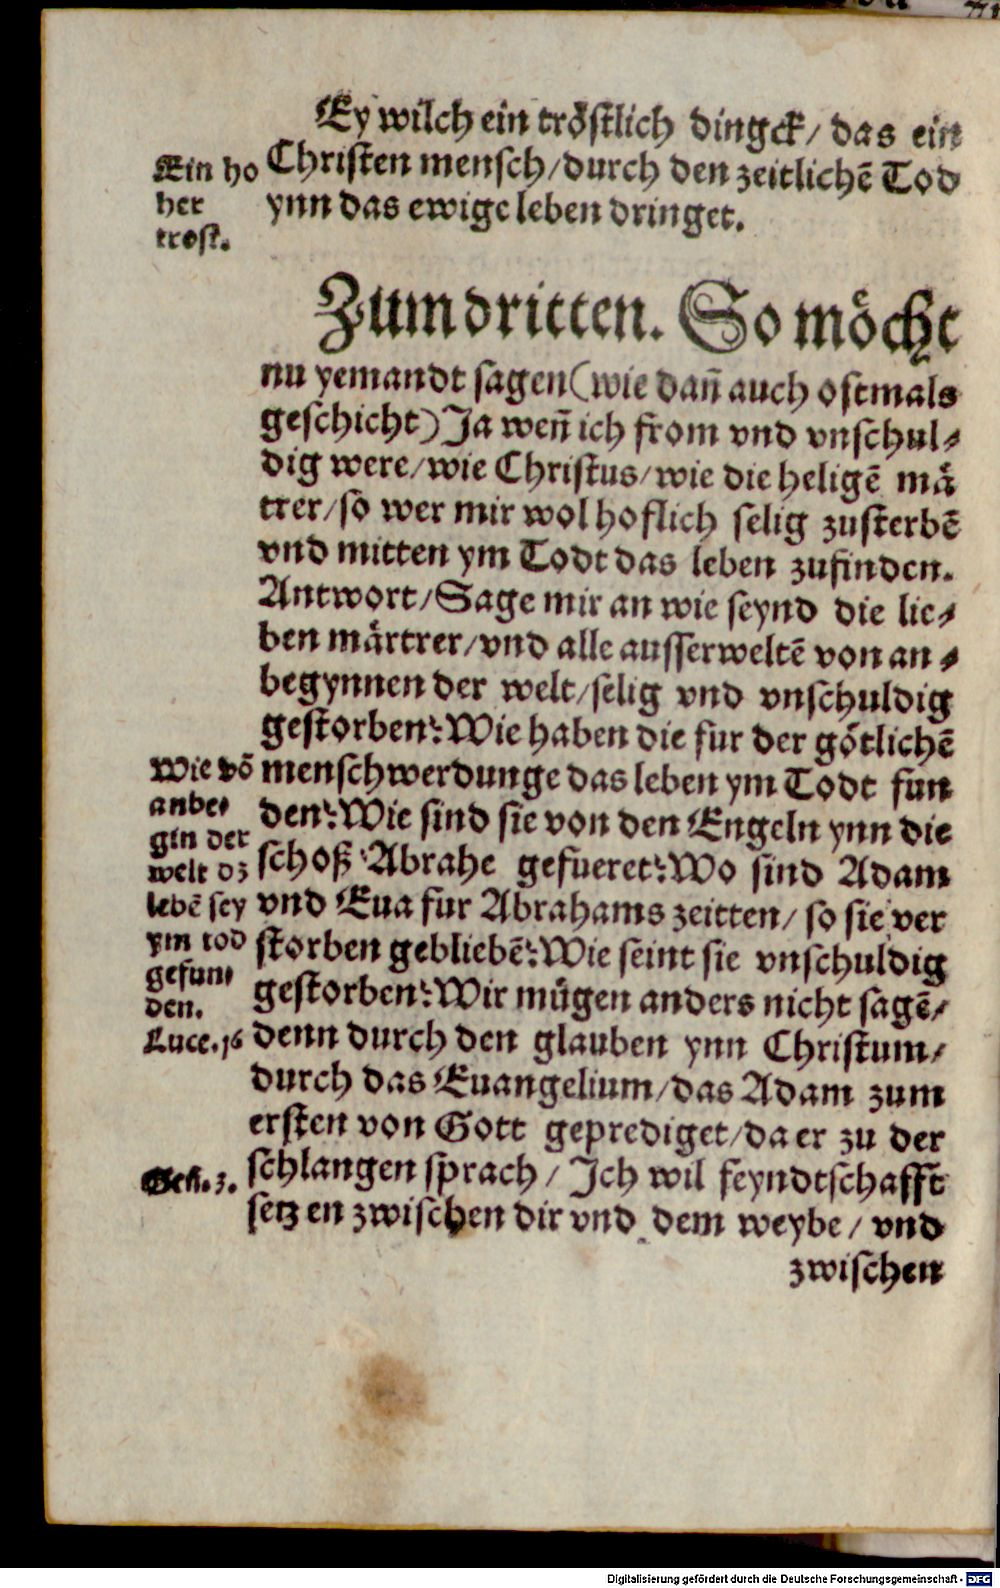 Ey wilch ein tröstlich dingck/ das ein
Christen mensch/durch den zeitlichē Tod
ynn das ewige leben dringet.
Ein ho
her
trost.
Zum dritten. So möcht
nu yemandt sagen(wie dañ auch oftmals
geschicht)Ja weñ ich from vnd vnschul⸗
dig were/wie Christus/wie die heligē mä
trer/so wer mir wol hoflich selig zusterbē
vnd mitten ym Todt das leben zufinden.
Antwort/Sage mir an wie seynd die lie⸗
ben märtrer/vnd alle ausserweltē von an⸗
begynnen der welt/selig vnd vnschuldig
gestorben?Wie haben die fur der götlichē
menschwerdunge das leben ym Todt fun
den?Wie sind sie von den Engeln ynn die
schoß Abrahe gefueret?Wo sind Adam
vnd Eua fur Abrahams zeitten/ so sie ver
storben gebliebē?Wie seint sie vnschuldig
gestorben?Wir mügen anders nicht sagē/
denn durch den glauben ynn Christum/
durch das Euangelium/das Adam zum
ersten von Gott geprediget/da er zu der
schlangen sprach/ Ich wil feyndtschafft
setzen zwischen dir vnd dem weybe/ vnd
zwischen
Wie vō
anbe⸗
gin der
welt dz
lebē sey
ym tod
gefun⸗
den.
Luce.16
Gen.3.
Digitalisierung gefördert durch die Deutsche Forschungsgemeinschaft - DFG